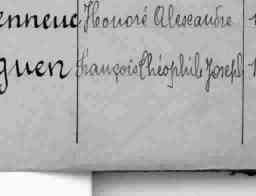 enneuc Honoré Alexandre 1
guen François Théophile Joseph 1